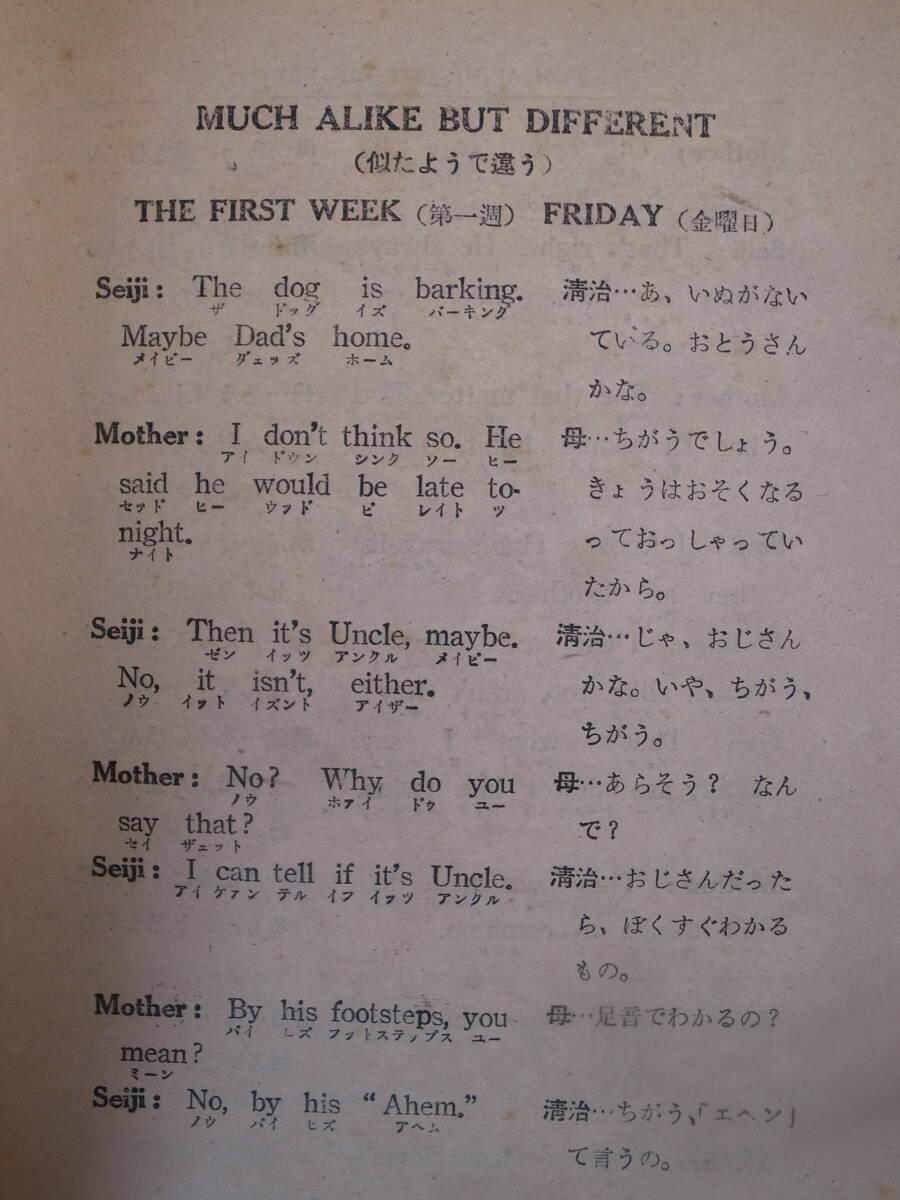 MUCH ALIKE BUT DIFFERENT
(似たようで違う)
THE FIRST WEEK (第一週) FRIDAY (金曜日)
Seiji: The dog is barking.
ザ ドッグ イズ バーキング
Maybe Dad's home.
メイビー ダェッズ ホーム
清治…あ、いぬがない
ている。おとうさん
かな。
Mother: I don't think so. He
アイ ドウン シンク ソー ヒー
said he would be late to-
セッド ヒー ウッド ビ レイト ツ
night.
ナイト
母…ちがうでしょう。
きょうはおそくなる
っておっしゃってい
たから。
Seiji: Then it's Uncle, maybe.
ゼン イッツ アンクル メイビー
No, it isn't, either.
ノウ イット イズント アイザー
清治…じゃ、おじさん
かな。いや、ちがう、
ちがう。
Mother: No? Why do you
ノウ ホアイ ドゥ ユー
say that?
セイ ザェット
母…あらそう? なん
で?
Seiji: I can tell if it's Uncle.
アイ ケァン テル イフ イッツ アンクル
清治…おじさんだった
ら、ぼくすぐわかる
もの。
Mother: By his footsteps, you
バイ ヒズ フットステップス ユー
mean?
ミーン
母…足音でわかるの?
Seiji: No, by his "Ahem."
ノウ バイ ヒズ アヘム
清治…ちがう、「エヘン」
て言うの。